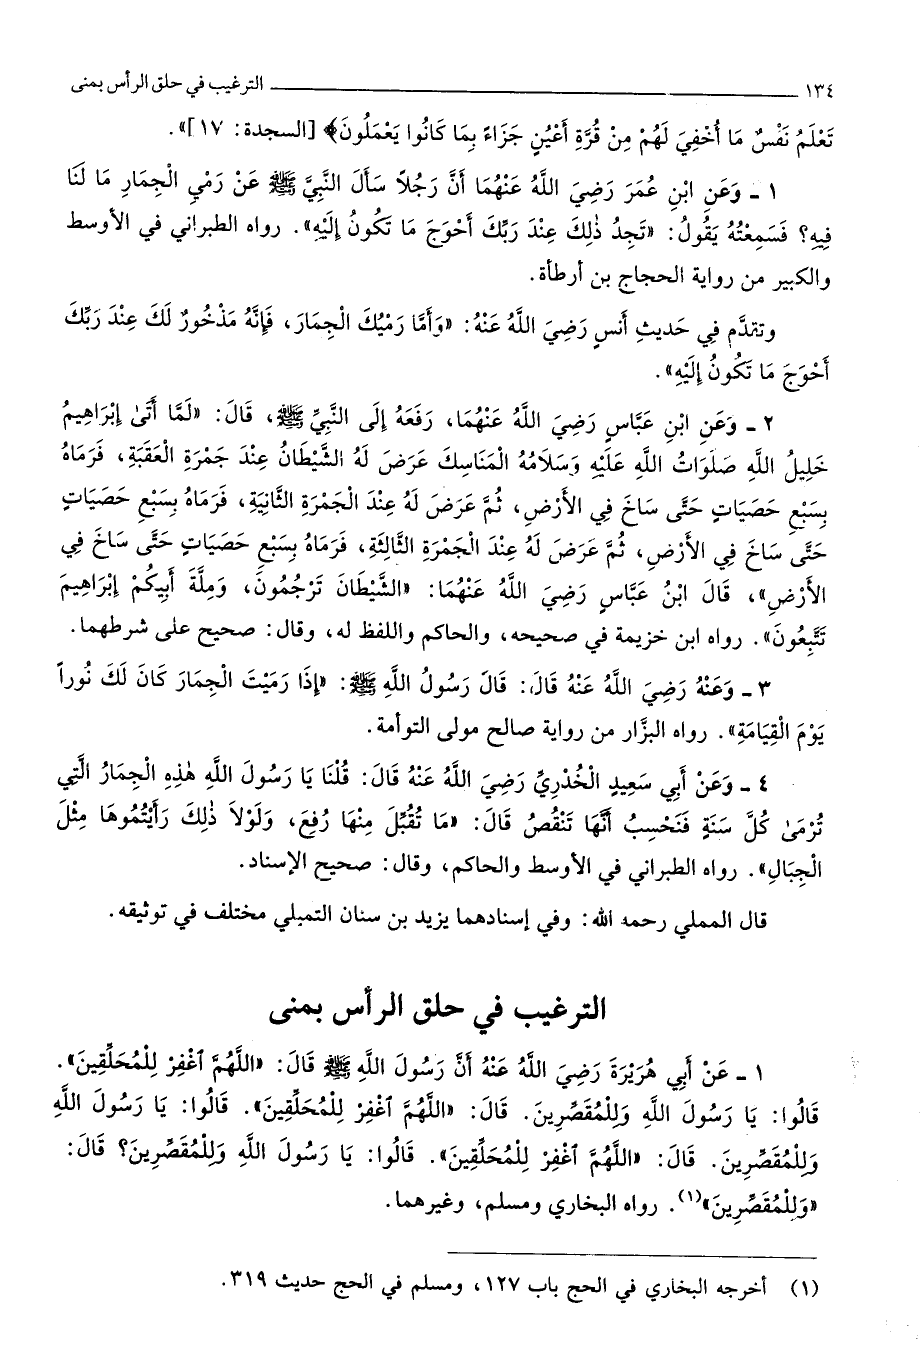 ١٣٤ الترغيب في حلق الرأس بمنى
تَعْلَمُ نَفْسٌ مَا أُخْفِيَ لَهُمْ مِنْ قُرَّةِ أَعْيُنٍ جَزَاءً بِمَا كَانُوا يَعْمَلُونَ﴾ [السجدة: ١٧]».
١ ـ وَعَنِ ابْنِ عُمَرَ رَضِيَ اللَّهُ عَنْهُمَا أَنَّ رَجُلاً سَأَلَ النَّبِيَّ ﷺ عَنْ رَمْيِ الْجِمَارِ مَا لَنَا
فِيهِ؟ فَسَمِعْتُهُ يَقُولُ: «تَجِدُ ذٰلِكَ عِنْدَ رَبِّكَ أَحْوَجَ مَا تَكُونُ إِلَيْهِ». رواه الطبراني في الأوسط
والكبير من رواية الحجاج بن أرطأة.
وتقدَّم فِي حَدِيثِ أَنسٍ رَضِيَ اللَّهُ عَنْهُ: «وَأَمَّا رَمْيُكَ الْجِمَارَ، فَإِنَّهُ مَذْخُورٌ لَكَ عِنْدَ رَبِّكَ
أَحْوَجَ مَا تَكُونُ إِلَيْهِ».
٢ ـ وَعَنِ ابْنِ عَبَّاسٍ رَضِيَ اللَّهُ عَنْهُمَا، رَفَعَهُ إِلَى النَّبِيِّ ﷺ، قَالَ: «لَمَّا أَتَىٰ إِبْرَاهِيمُ
خَلِيلُ اللَّهِ صَلَوَاتُ اللَّهِ عَلَيْهِ وَسَلَامُهُ الْمَنَاسِكَ عَرَضَ لَهُ الشَّيْطَانُ عِنْدَ جَمْرَةِ الْعَقَبَةِ، فَرَمَاهُ
بِسَبْعِ حَصَيَاتٍ حَتَّى سَاخَ فِي الأَرْضِ، ثُمَّ عَرَضَ لَهُ عِنْدَ الْجَمْرَةِ الثَّانِيَةِ، فَرَمَاهُ بِسَبْعِ حَصَيَاتٍ
حَتَّى سَاخَ فِي الأَرْضِ، ثُمَّ عَرَضَ لَهُ عِنْدَ الْجَمْرَةِ الثَّالِثَةِ، فَرَمَاهُ بِسَبْعِ حَصَيَاتٍ حَتَّى سَاخَ فِي
الأَرْضِ»، قَالَ ابْنُ عَبَّاسٍ رَضِيَ اللَّهُ عَنْهُمَا: «الشَّيْطَانَ تَرْجُمُونَ، وَمِلَّةَ أَبِيكُمْ إِبْرَاهِيمَ
تَتَّبِعُونَ». رواه ابن خزيمة في صحيحه، والحاكم واللفظ له، وقال: صحيح على شرطهما.
٣ ـ وَعَنْهُ رَضِيَ اللَّهُ عَنْهُ قَالَ: قَالَ رَسُولُ اللَّهِ ﷺ: «إِذَا رَمَيْتَ الْجِمَارَ كَانَ لَكَ نُوراً
يَوْمَ الْقِيَامَةِ». رواه البزَّار من رواية صالح مولى التوأمة.
٤ ـ وَعَنْ أَبِي سَعِيدٍ الْخُدْرِيِّ رَضِيَ اللَّهُ عَنْهُ قَالَ: قُلْنَا يَا رَسُولَ اللَّهِ هٰذِهِ الْجِمَارُ الَّتِي
تُرْمَىٰ كُلَّ سَنَةٍ فَنَحْسِبُ أَنَّهَا تَنْقُصُ قَالَ: «مَا تُقُبِّلَ مِنْهَا رُفِعَ، وَلَوْلاَ ذٰلِكَ رَأَيْتُمُوهَا مِثْلَ
الْجِبَالِ». رواه الطبراني في الأوسط والحاكم، وقال: صحيح الإسناد.
قال المملي رحمه الله: وفي إسنادهما يزيد بن سنان التميلي مختلف في توثيقه.
الترغيب في حلق الرأس بمنى
١ ـ عَنْ أَبِي هُرَيْرَةَ رَضِيَ اللَّهُ عَنْهُ أَنَّ رَسُولَ اللَّهِ ﷺ قَالَ: «اللَّهُمَّ ٱغْفِرْ لِلْمُحَلِّقِينَ».
قَالُوا: يَا رَسُولَ اللَّهِ وَلِلْمُقَصِّرِينَ. قَالَ: «اللَّهُمَّ ٱغْفِرْ لِلْمُحَلِّقِينَ». قَالُوا: يَا رَسُولَ اللَّهِ
وَلِلْمُقَصِّرِينَ. قَالَ: «اللَّهُمَّ ٱغْفِرْ لِلْمُحَلِّقِينَ». قَالُوا: يَا رَسُولَ اللَّهِ وَلِلْمُقَصِّرِينَ؟ قَالَ:
«وَلِلْمُقَصِّرِينَ»(١). رواه البخاري ومسلم، وغيرهما.
(١) أخرجه البخاري في الحج باب ١٢٧، ومسلم في الحج حديث ٣١٩.